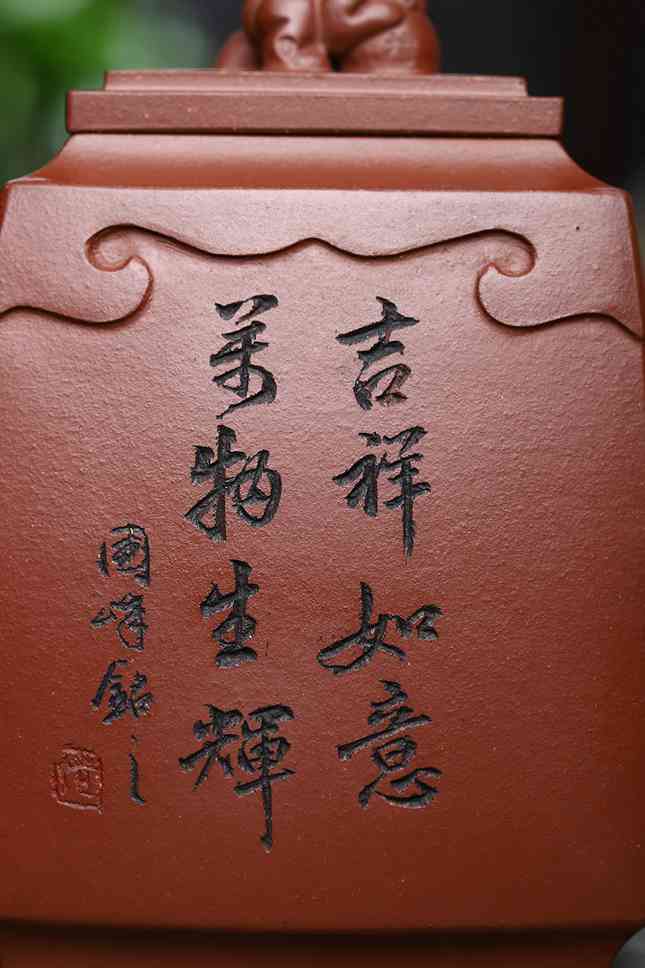 吉祥如意
萬物生輝
國峰銘之